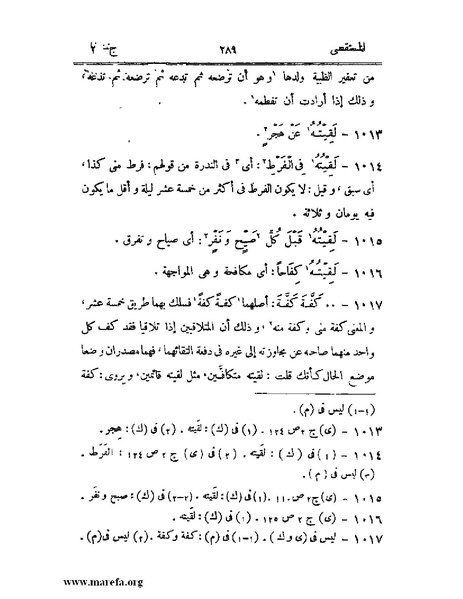 المستقصى ٢٨٩ ج – ٢
من تعفير الظبية ولدها ١وهو أن ترضعه ثم تدعه ثم ترضعه ثم تدعه،
و ذلك إذا أرادت أن تفطمه١.
١٠١٣ – لَقِيْتُهُ١ عَنْ هَجْرٍ٢.
١٠١٤ – لَقِيْتُهُ١ فِى الْفَرْطِ٢: أى٣ فى الندرة من قولهم: فرط منى كذا،
أى سبق، و قيل: لا يكون الفرط فى أكثر من خمسة عشر ليلة و أقل ما يكون
فيه يومان و ثلاثة.
١٠١٥ – لَقِيْتُهُ١ قَبْلَ كُلِّ ٢صَيْحٍ وَ نَفْرٍ٢: أى صياح و تفرق.
١٠١٦ – لَقِيْتُهُ١ كِفَاحًا: أى مكافحة و هى المواجهة.
١٠١٧ – ٠٠ كَفَّةَ كَفَّةَ: أصلهما ١كفةً كفةً١ فسلك بهما طريق خمسة عشر،
و المعنى كفة منى وكفة منه٢، و ذلك أن المتلاقيين إذا تلاقيا فقد كف كل
واحد منهما صاحبه عن مجاوزته إلى غيره فى دفعة التقائهما، فهما مصدران وضعا
موضع الحال كأنك قلت: لقيته متكافين، مثل لقيته قائمين، و يروى: كفة
(١-١) ليس فى (م).
١٠١٣ – (ى) ج ٢ ص ١٢٤. (١) فى (ك): لقيته. (٢) فى (ك): هجر.
١٠١٤ – (١) فى (ك): لقيته. (٢) فى (ى) ج ٢ ص ١٢٤: الفرط.
(٣) ليس فى (م).
١٠١٥ – (ى) ج ٢ ص ١١٠. (١) فى (ك): لقيته. (٢-٢) فى (ك): صبح ونفر.
١٠١٦ – (ى) ج ٢ ص ١٢٥ (١) فى (ك): لقيته.
١٠١٧ – ليس فى (ى و ك). (١-١) فى (م): كفة وكفة. (٢) ليس فى (م).
www.marefa.org